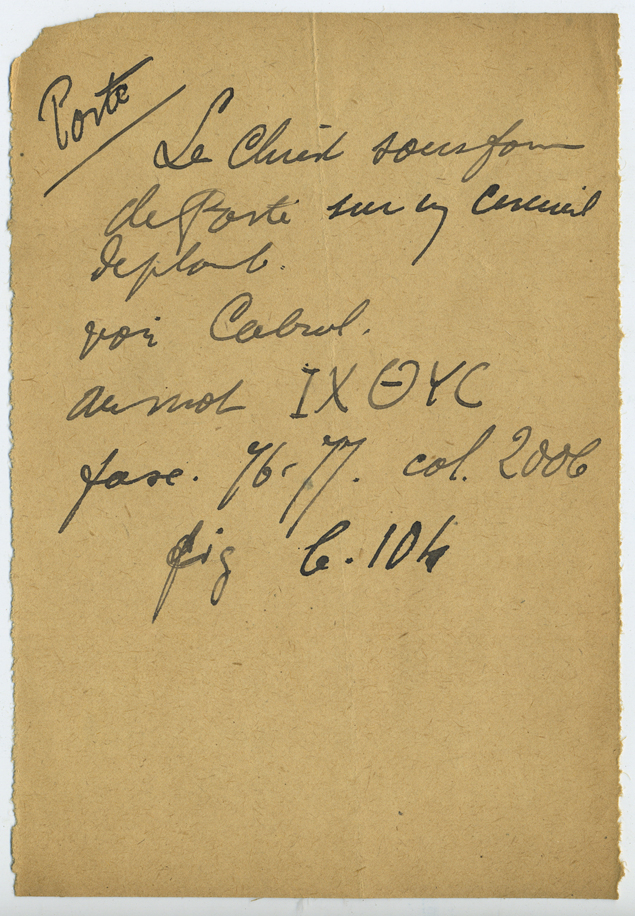 Porte
Le Christ sous form
de Porte sur un cercueil
de plomb.
voir Cabrol.
au mot ΙΧΘΥC
fasc. 76-77. col. 2006
fig 6.104